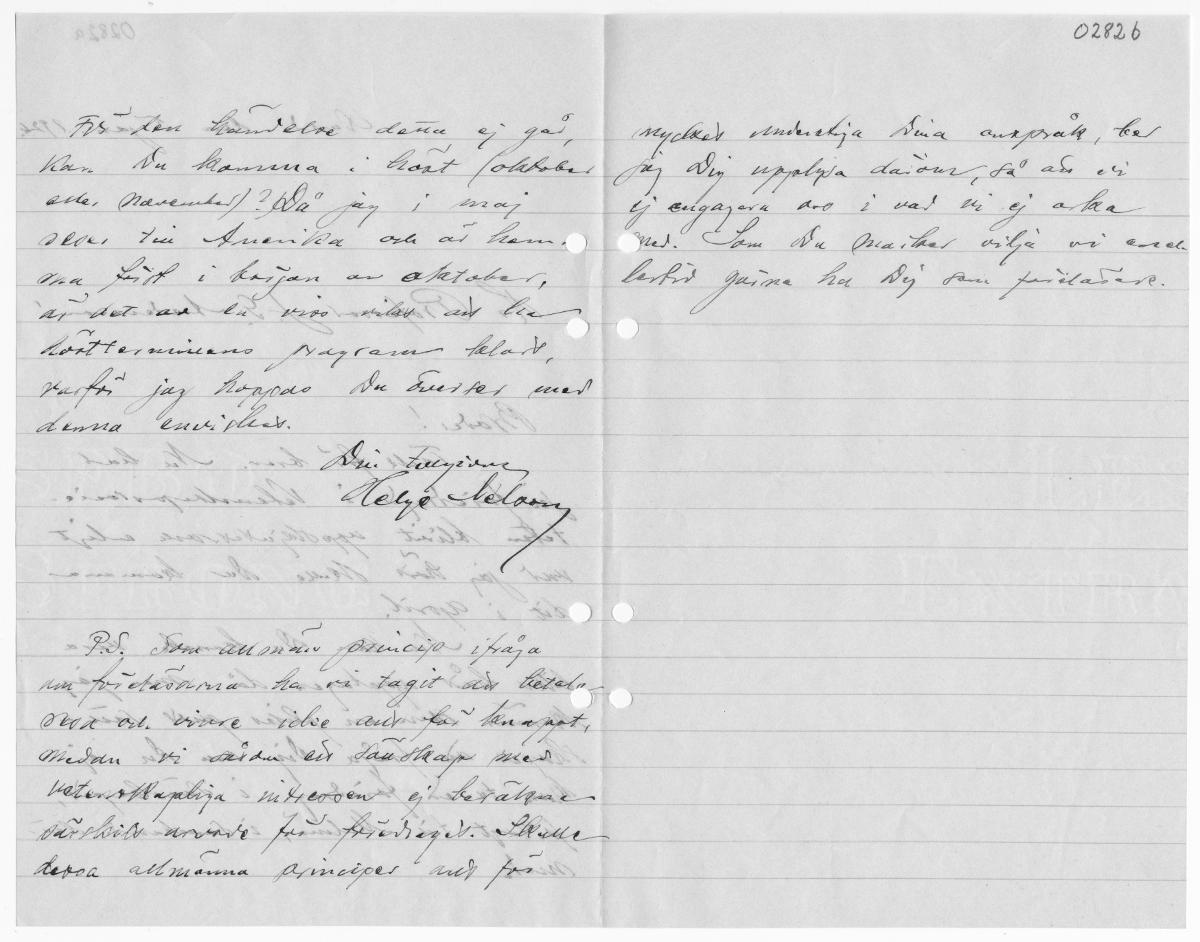 02826
För den händelse detta ej går,
kan Du komma i höst (oktober
eller november)? Då jag i maj
reser till Amerika och är hem-
ma först i början av oktober,
är det av en viss vikt att ha
höstterminens program klart,
varför jag hoppas Du överser med
denna envishet.
Din tillgivne
Helge Nelson
P.S. Som allmän princip ifråga
om föreläsarna ha vi tagit att betala
resa och vivre icke allt för knappt,
medan vi såsom ett sällskap med
vetenskapliga intressen ej beräkna
särskilt arvode för föredraget. Skulle
dessa allmänna principer allt för
mycket understiga Dina anspråk, ber
jag Dig upplysa därom, så att vi
ej engagera oss i vad vi ej orka
med. Som Du märker vilja vi emel-
lertid gärna ha Dig som föreläsare.